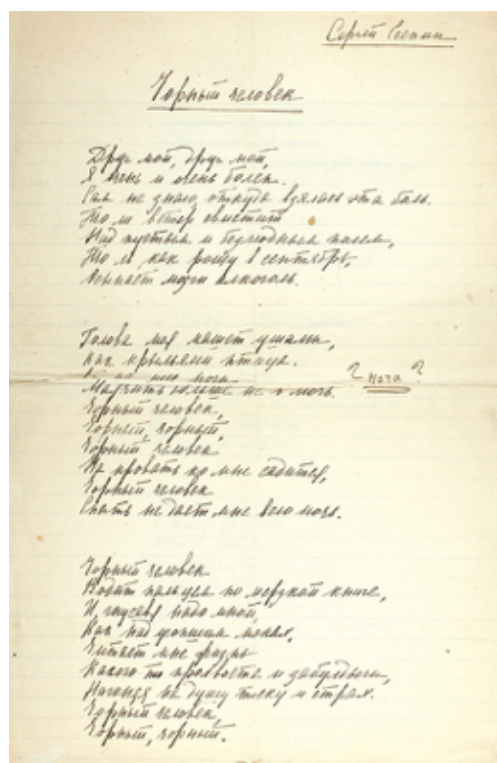 Сергей Есенин
Чорный человек
Друг мой, друг мой,
Я очень и очень болен.
Сам не знаю, откуда взялась эта боль.
То ли ветер свистит
Над пустым и безлюдным полем,
То ль, как рощу в сентябрь,
Осыпает мозги алкоголь.
Голова моя машет ушами,
Как крыльями птица.
ноги
Маячить больше не в мочь.
? ноги ?
Чорный человек,
Чорный, чорный,
Чорный человек
На кровать ко мне садится,
Чорный человек
Спать не дает мне всю ночь.
Чорный человек
Водит пальцем по мерзкой книге,
И, гнусавя надо мной,
Как над усопшим монах,
Читает мне жизнь
Какого то прохвоста и забулдыги,
Нагоняя на душу тоску и страх.
Чорный человек,
Чорный, чорный.